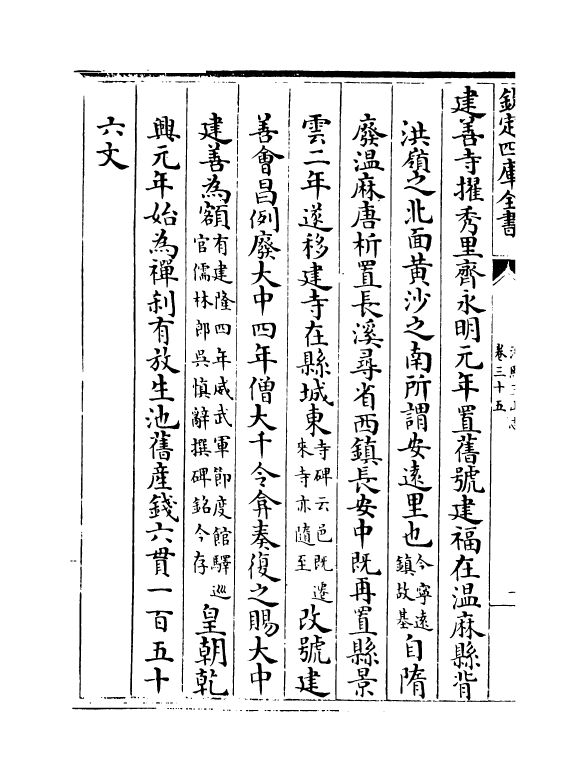 欽定四庫全書
卷三十五
建善寺擢秀里齊永明元年置舊號建福在温麻縣背
洪嶺之北面黄沙之南所謂安遠里也今寧遠鎮故基自隋
廢温麻唐析置長溪尋省西鎮長安中既再置縣景
雲二年遂移建寺在縣城東寺碑云邑既遷來寺亦隨至改號建
善會昌例廢大中四年僧大千令弇奏復之賜大中
建善為額有建隆四年威武軍節度館驛廵官儒林郎吳慎辭撰碑銘今存皇朝乾
興元年始為禪刹有放生池舊産錢六貫一百五十
六文